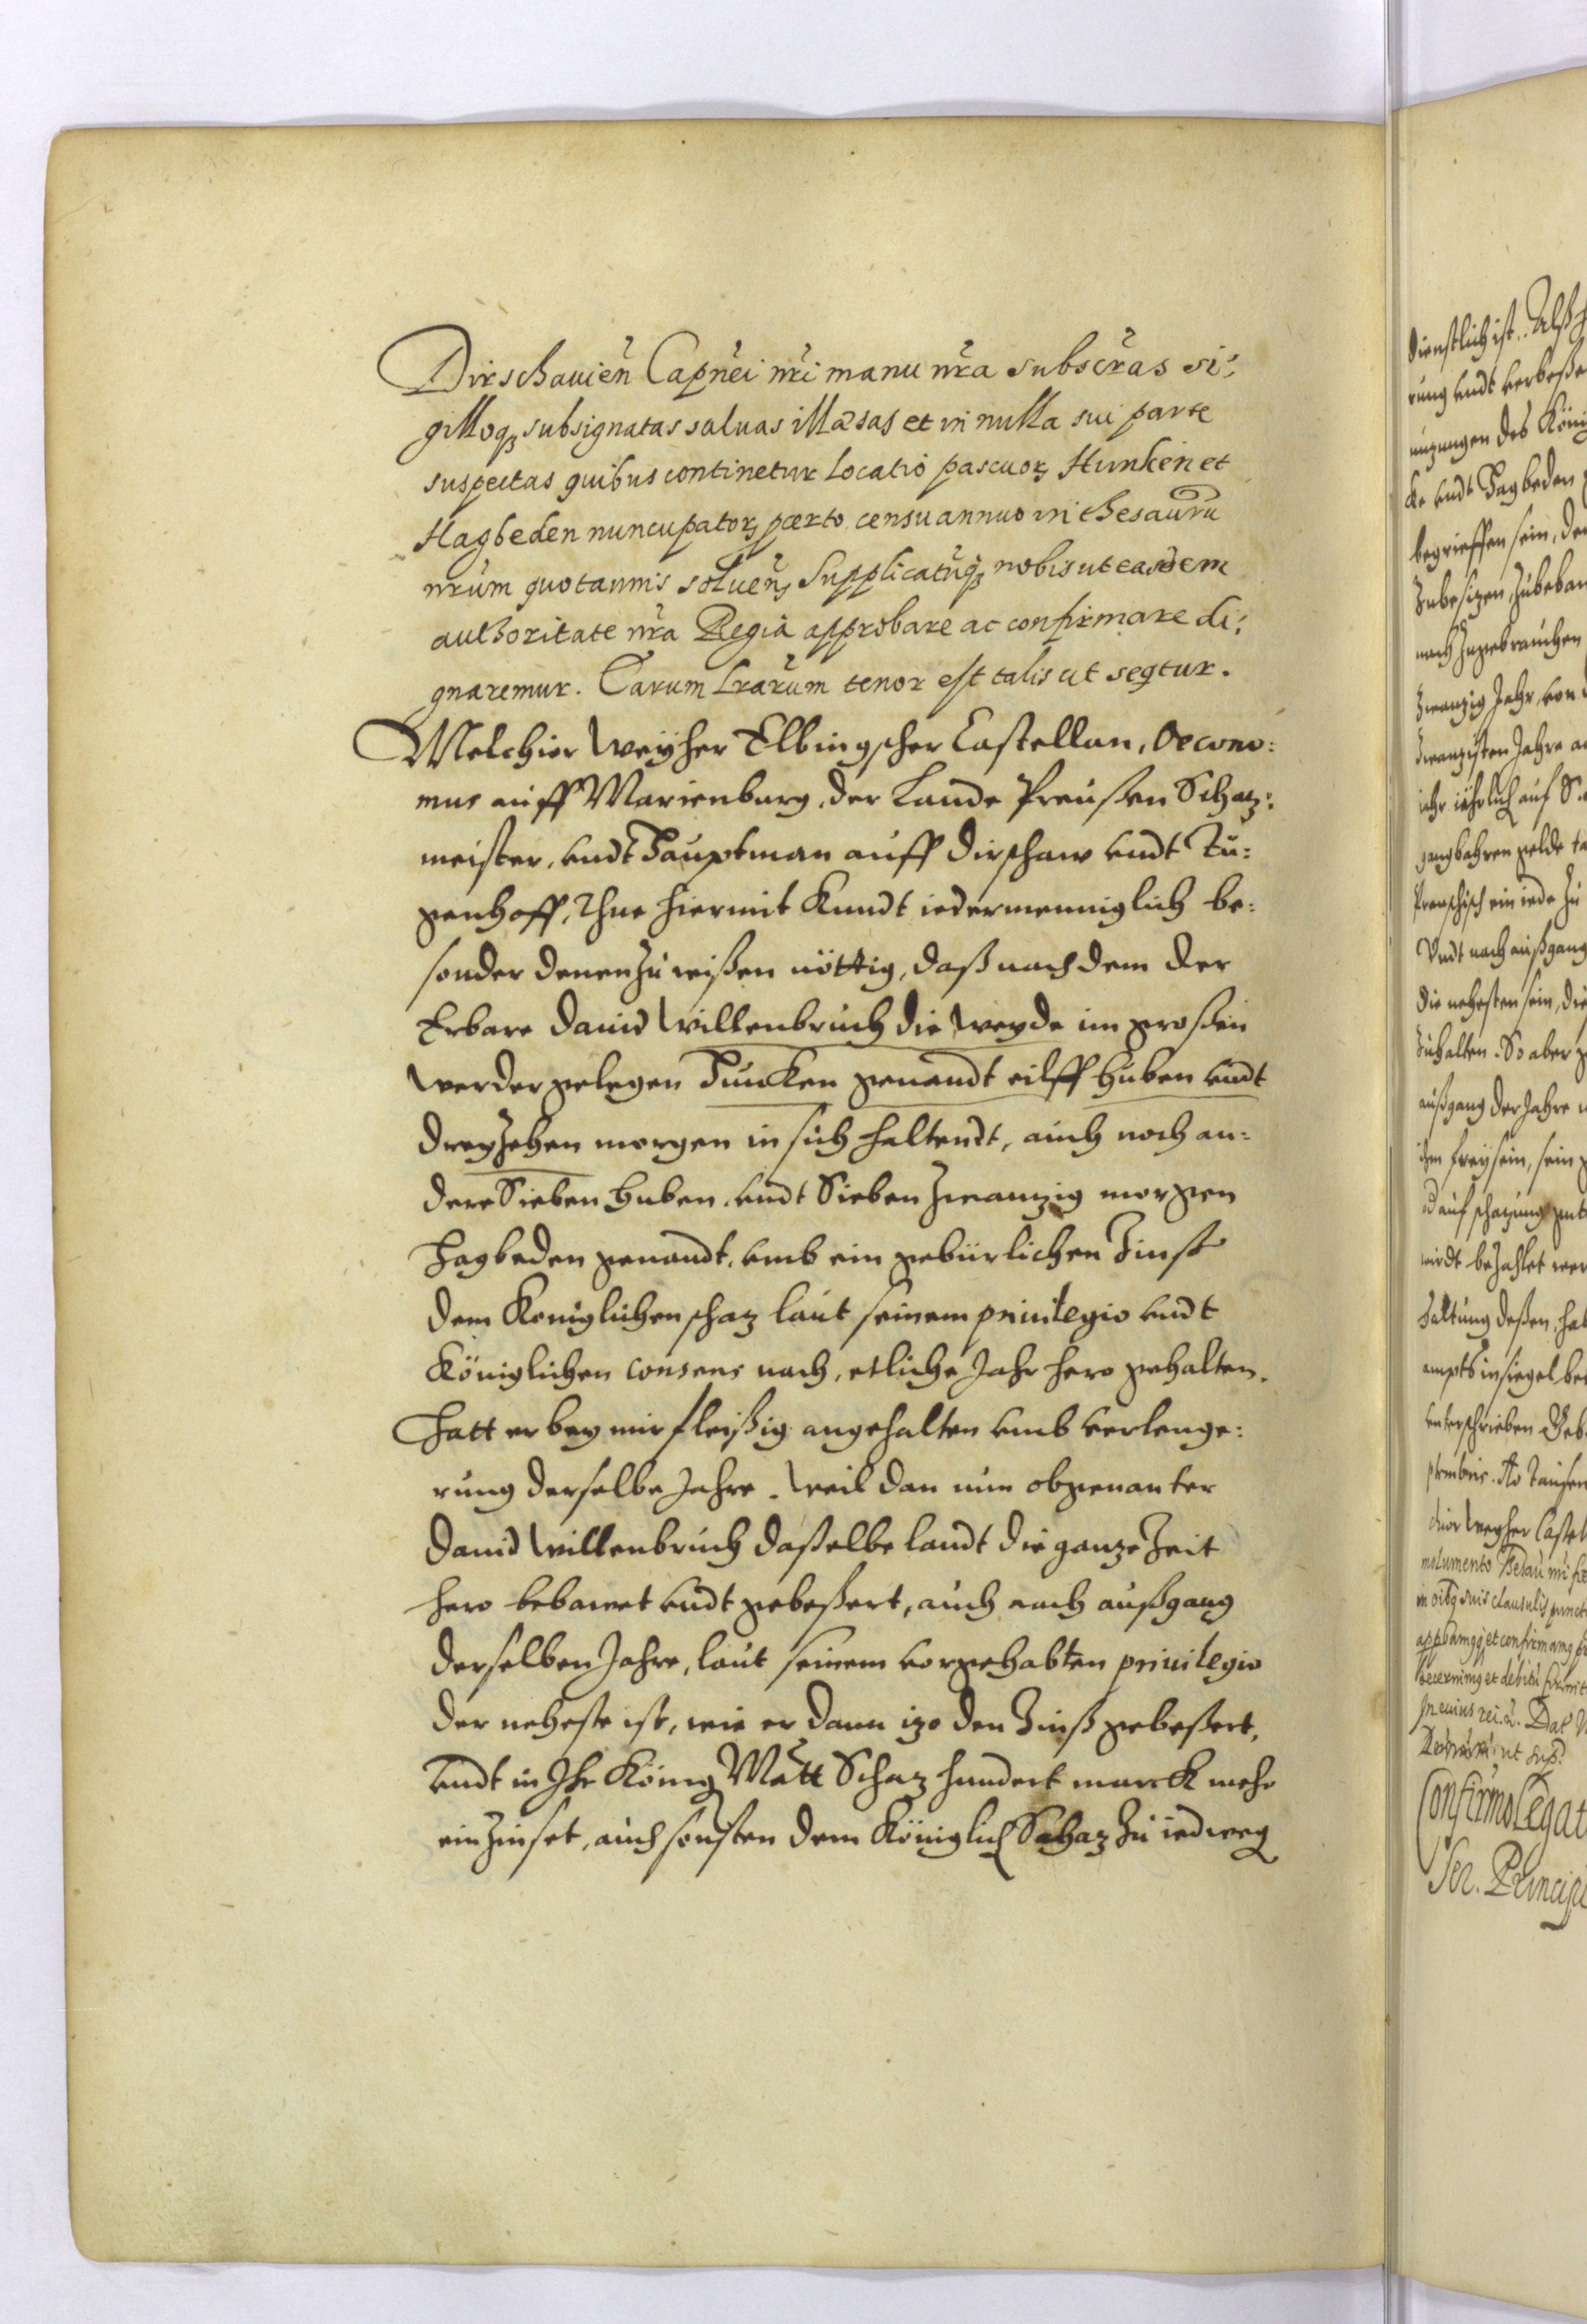 Dirschauien̄ Capnei nr̄i manu nr̄a subscr̄as si:
gilloq3 subsignatas saluas illæsas et in nulla sui parte
suspectas quibus continetur locatio pascuorꝫ Hunken et
Hagbeden nuncupatorꝫ certo censu annuo in thesauru
nrūm quotannis soluenꝫ Supplicatūq3 nobis ut easdem
authoritate nr̄a Regia approbare ac confirmare di:
gnaremur. Earum Lrārum tenor est talis ut seqtur.
Melchior Weyher Elbingscher Castellan, Oecono:
mus auff Marienburg, der Lande Preussen Schaz:
meister, vndt Hauptman auff Dirschaw vndt Tu:
genhoff, Thue hiermit Kundt iedermenniglich be:
sonder denen zu wissen nöttig, daß nach dem der
Erbare Dauid Willenbruch die Weyde im grossen
Werder gelegen Huncken genandt eilff Huben vndt
dreyzehen morgen in sich haltendt, auch noch an:
dere Sieben Huben, vndt Sieben zwanzig morgen
Hagbeden genandt, vmb ein gebürlichen Zinß
dem Koniglichen schaz laut seinem priuilegio vndt
Königlichen consens nach, etliche Jahr hero gehalten.
Hatt er bey mir fleissig angehalten vmb verlenge:
rung derselbe Jahre. Weil dan nun obgenanter
Dauid Willenbruch dasselbe landt die ganze Zeit
hero bebawet vndt gebessert, auch nach außgang
derselben Jahre, laut seinem vorgehabten priuilegio
der neheste ist, wie er dann izo den Zinß gebessert,
vndt in Ihr König Mātt Schaz hundert marck mehr
einzinset, auch sonsten dem Königlich Schaz zu iedweg
dienstlich ist. Alß
rung vndt verbesse
nuzungen des König
ke vndt Hagbeden
begrieffen sein, de
zubesizen, zubebau
nach zugebrauchen
zwanzig Jahr, von
zwanzigsten Jahre a
iahr iährlich auf S.
gangbahren gelde ta
Preuschisch ein iede zu
Vndt nach außgang
die nehesten sein, die
zuhalten. So aber
außgang der Jahre
ihm frey sein, sein
auf schazung gut
wirdt bezahlet wer
haltung dessen, hab
ampts insiegel be
vnterschrieben Geb
ptembris. Ao Tausen
chior Weyher Castel
molumento Thesau nri
in oibq suis clausulis punct
approbamq et confirmamq
decernimq et debitū firmit
In cuius rei. Dat
ut sup.
Confirmo Legat
Ser. Principi